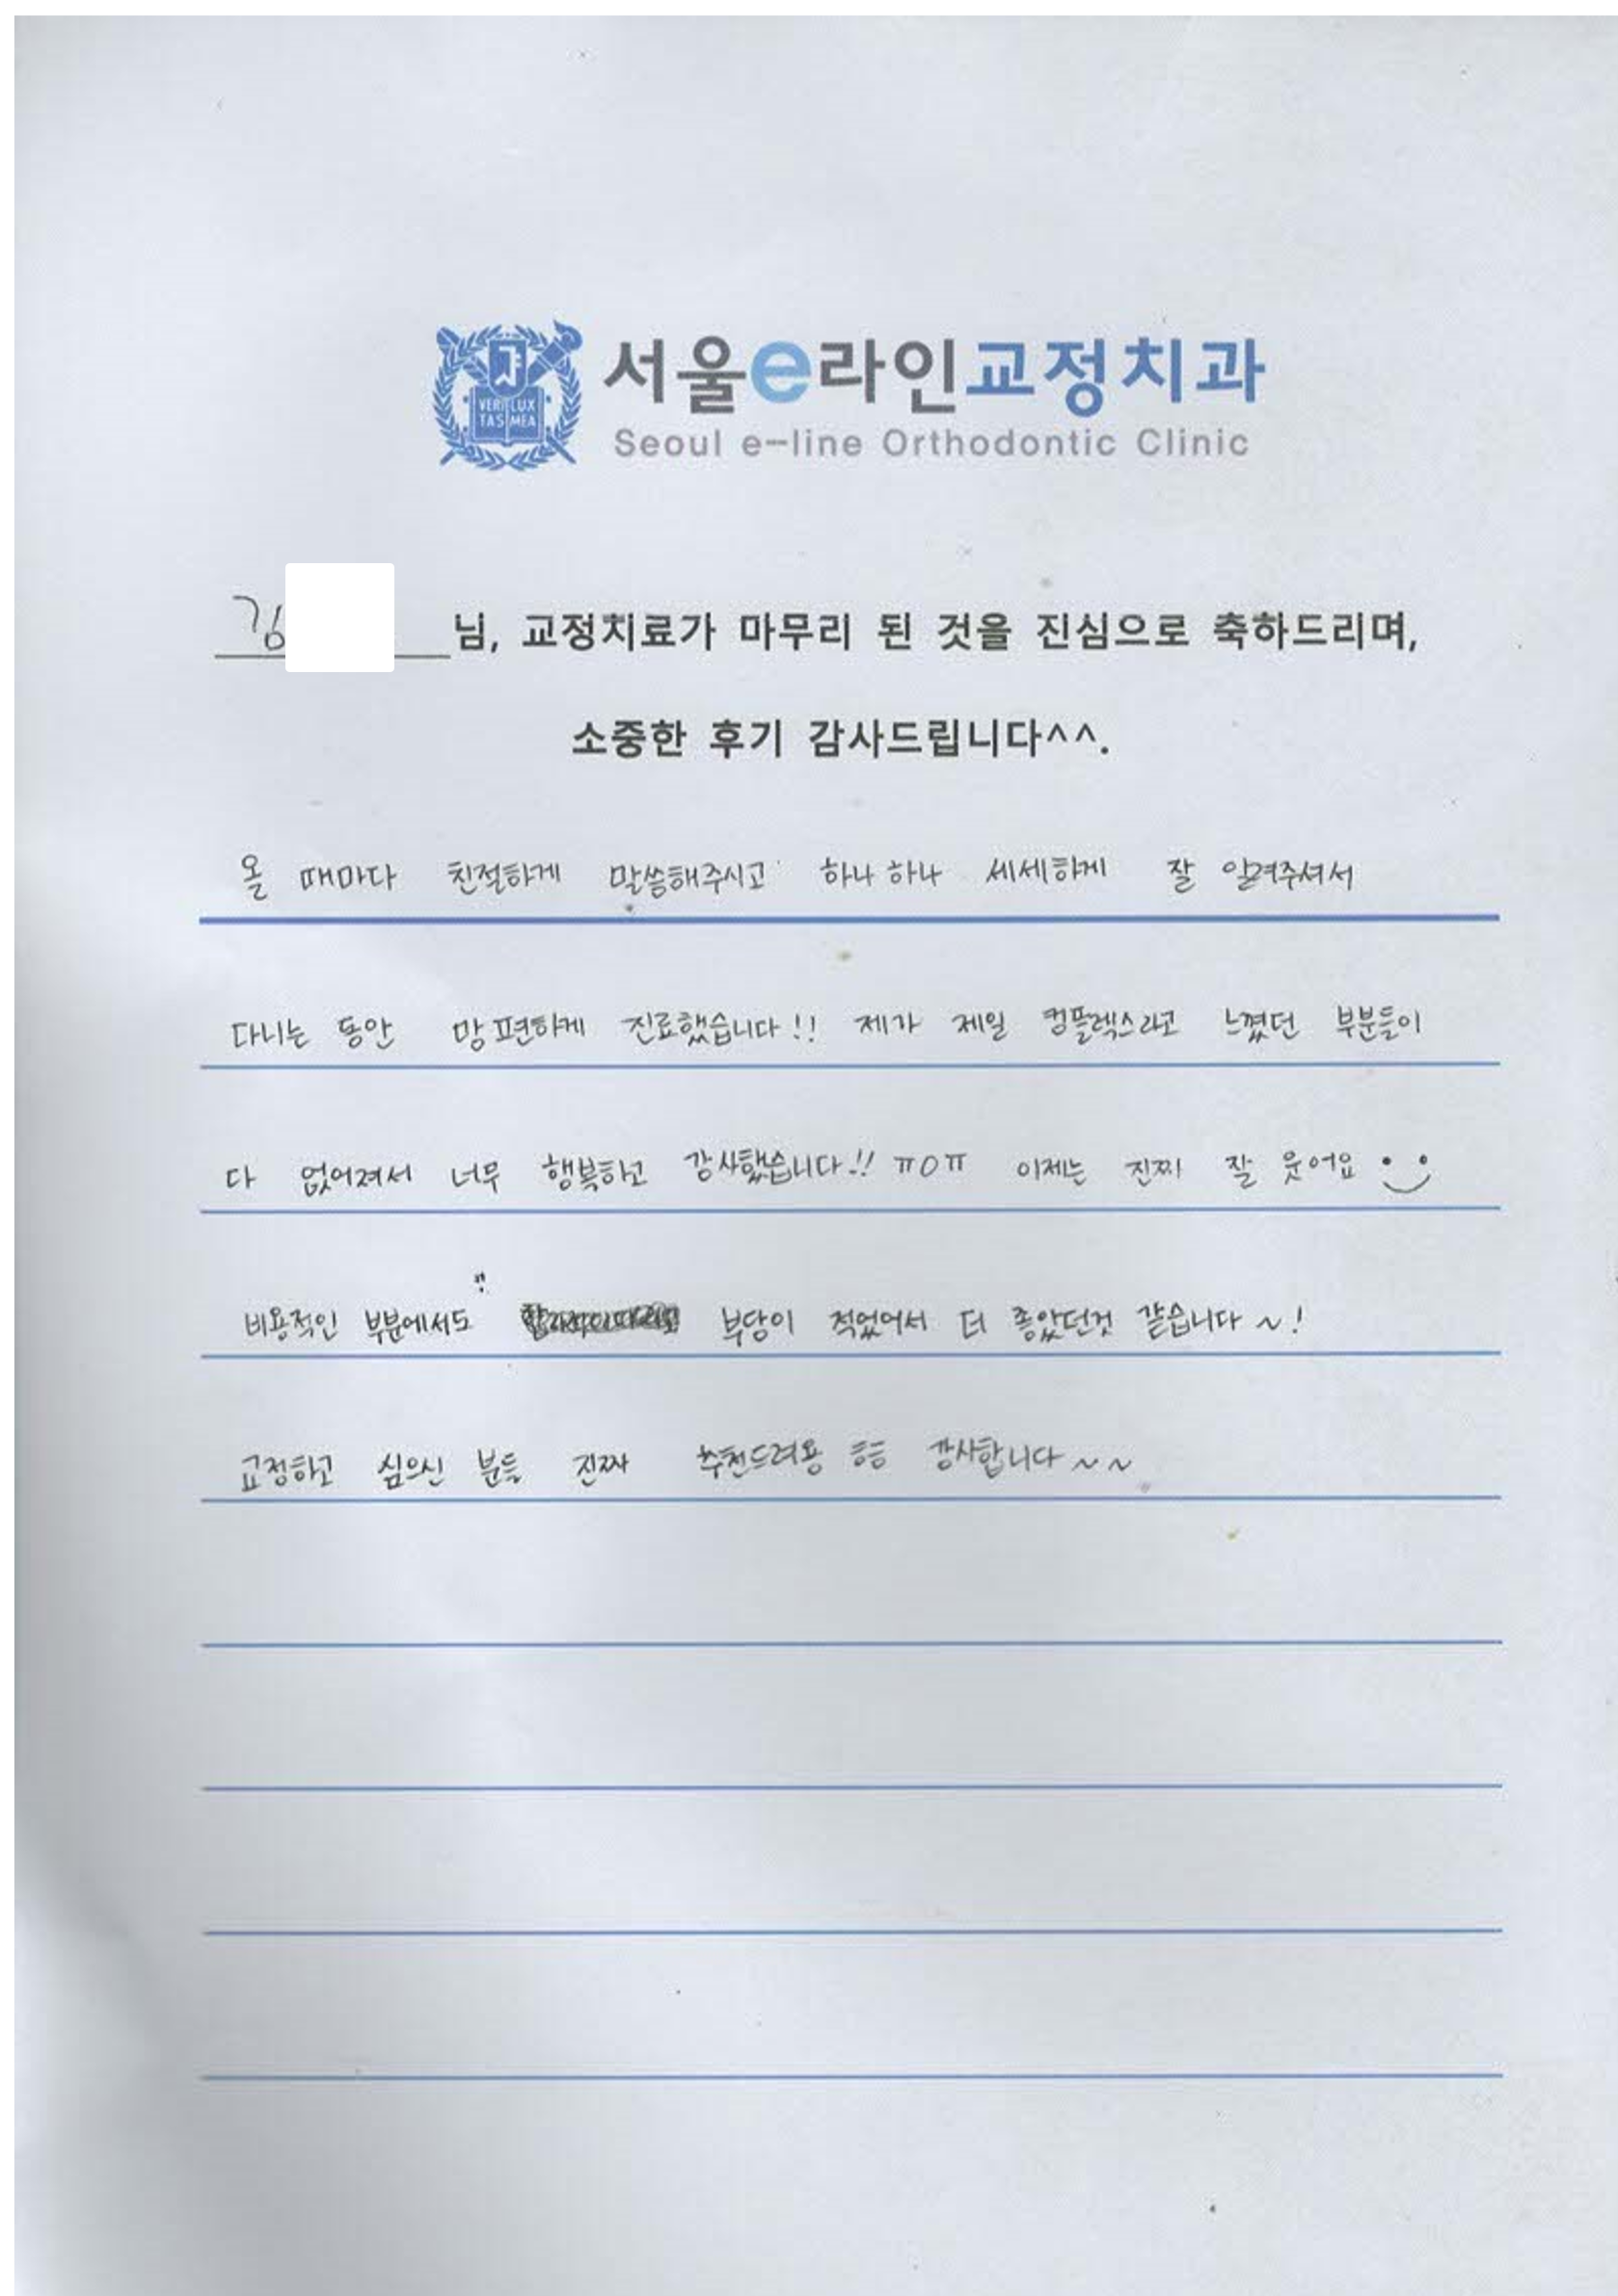 VERI LUX
TAS MEA
서울e라인교정치과
Seoul e-line Orthodontic Clinic
김 님, 교정치료가 마무리 된 것을 진심으로 축하드리며,
소중한 후기 감사드립니다^^.
올 때마다 친절하게 말씀해주시고 하나하나 세세하게 잘 알려주셔서
다니는 동안 맘편하게 진료했습니다!! 제가 제일 컴플렉스라고 느꼈던 부분들이
다 없어져서 너무 행복하고 감사했습니다!! ㅠㅇㅠ 이제는 진짜 잘 웃어요
비용적인 부분에서도 부담이 적었어서 더 좋았던것 같습니다~!
교정하고 싶으신 분들 진짜 추천드려용 ㅎㅎ 감사합니다~~